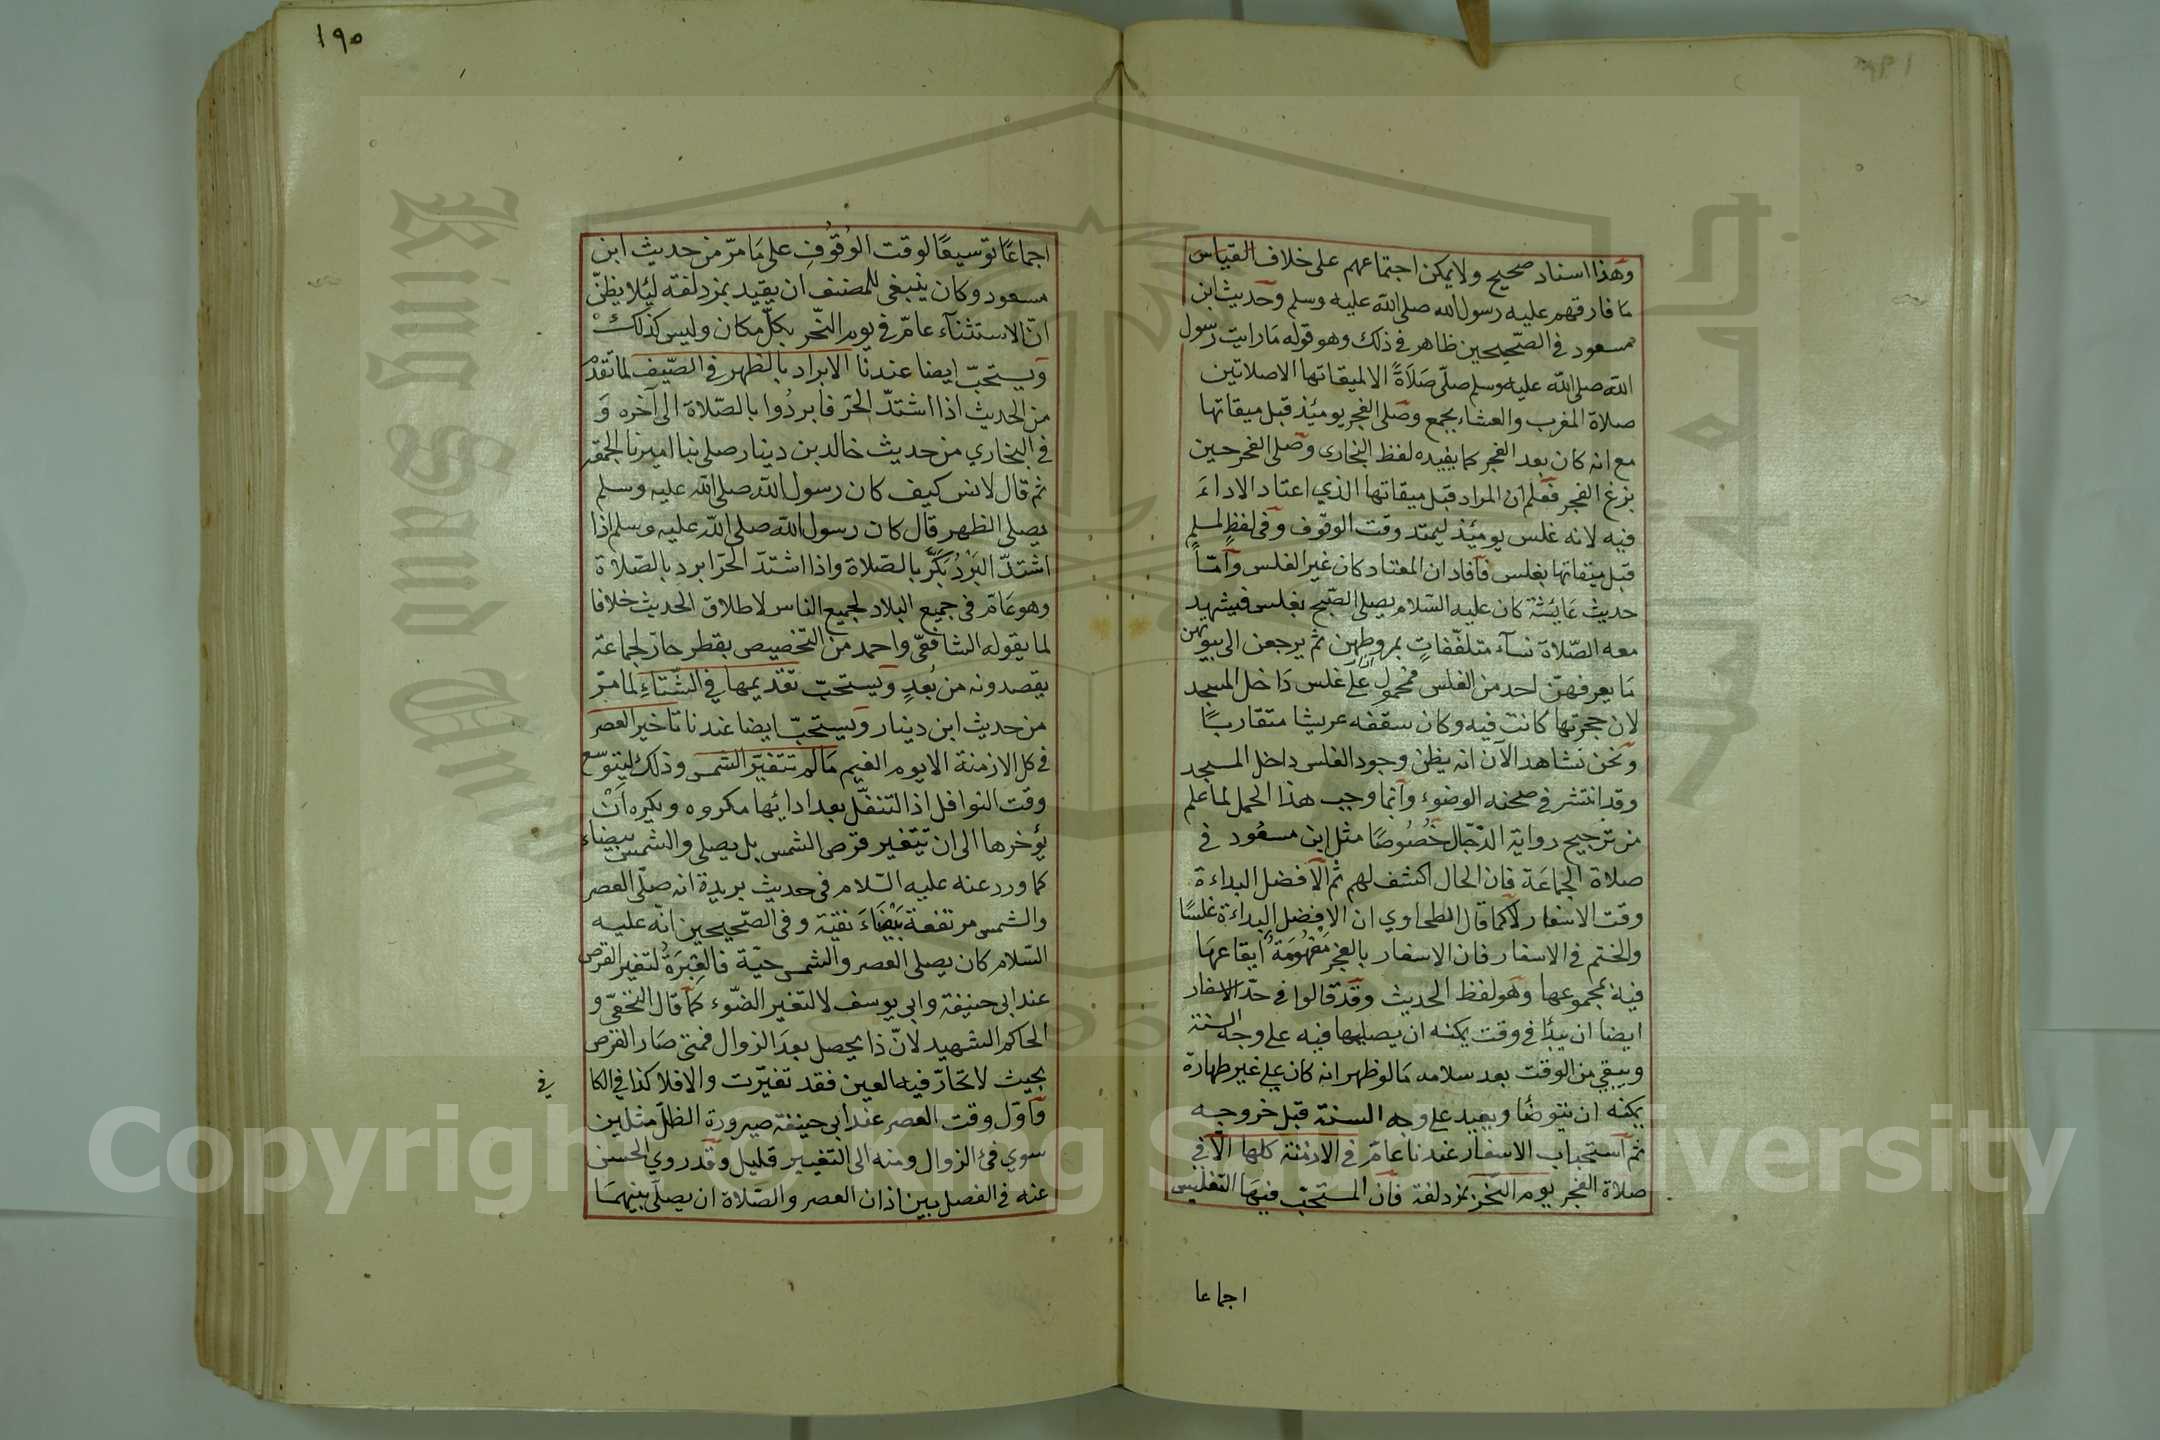 وهذا اسناد صحيح ولا يمكن اجتماعهم على خلاف القياس
ما فارقهم عليه رسول الله صلى الله عليه وسلم وحديث ابن
مسعود في الصحيحين ظاهر في ذلك وهو قوله ما رايت رسول
الله صلى الله عليه وسلم صلى صَلَاةً الا لميقاتها الاصلاتين
صلاة المغرب والعشاء بجمع وصلى الفجر يومئذ قبل ميقاتها
مع انه كان بعد الفجر كما يفيده لفظ البخارى وصلى الفجر حين
بزغ الفجر فعلم ان المراد قبل ميقاتها الذي اعتاد الاداءَ
فيه لانه غلس يومئذ ليمتد وقت الوقوف وفى لفظٍ لمسلم
قبل ميقاتها بغلس فآفاد ان المعتاد كان غير الغلس وآمّاً
حديث عَايشة كان عليه السّلام يصلى الصّبح بغلس فيشهد
معه الصّلاة نساء متلفّفاتٍ بمروطهن ثم يرجعن الى بيوتهن
مَا يعرفهنّ احد من الغلس فمحمول على غلس دَاخل المسجد
لان حجرتها كانت فيه وكان سقفه عريشا متقاربًا
ونحن نشاهد الآن انه يظن وجود الغلس داخل المسجد
وقد انتشر في صحنه الوضوء وآنما وجب هذا الحمل لما علم
من ترجيح رواية الرّجال خُصُوصًا مثل ابن مسعود في
صلاة الجماعَة فان الحال اكشف لهم ثم الافضل البداءة
وقت الاسفار لا كما قال الطحاوي ان الافضل البداءة غلسًا
والختم في الاسفار فان الاسفار بالفجر مَفْهُومَةُ ايقاعهَا
فيه بمجموعها وهو لفظ الحديث وقد قالوا في حدّ الاسفار
ايضا ان يبدا في وقت يمكنه ان يصليها فيه على وجه السنة
ويبقي من الوقت بعد سلامه مَا لو ظهر انه كان على غير طهارة
يمكنه ان يتوضّا ويعيد على وجه السنة قبل خروجه
ثم آستحباب الاسفار عندنا عامّ في الازمنة كلها الّا في
صلاة الفجر يوم النحر بمزدلفة فان المستحب فيهَا التغليس
اجماعا
١٩٥
اجماعًا توسيعًا لوقت الوُقوُفِ على مَا مرّ من حديث ابن
مسعود وكان ينبغي للمصنف ان يقيد بمزدلفة ليئلا يظنّ
انّ الاستثناء عامّ في يوم النّحر بكلّ مكان وليس كذلكْ
ويستحبّ ايضا عندنا الابراد بالظهر في الصّيف لما تقدم
من الحديث اذا اشتدّ الحرّ فابردُوا بالصّلاة الى آخره وَ
في البخاري من حديث خالد بن دينار صلى بنا اميرنا الجمعة
ثم قال لانس كيف كان رسول الله صلى الله عليه وسلم
يصلى الظهر قال كان رسول الله صلى الله عليه وسلم اذا
اشتدّ البَرْدُ بَكَّرَ بالصّلاة واذا اشتدّ الحرّ ابرد بالصّلاة
وهو عَامّ في جميع البلاد لجميع الناس لاطلاق الحديث خلافا
لما يقوله الشافعّي واحمد من التخصيص بقطر حارّ لجماعة
يقصدونه من بُعدٍ ويستحبّ تقديمها في الشّتاءِ لما مرّ
من حديث ابن دينار ويستحبّ ايضا عندنا تاخير العصر
في كل الازمنة الا يوم الغيم مَا لم تتغيّر الشمس وذلك ليتوسّع
وقت النوافل اذ التنفّل بعد ادائها مكروه ويكره اَنْ
يؤخرها الى ان تتغير قرص الشمس بل يصلى والشمس بيضاء
كما ورد عنه عليه السّلام في حديث بريدة انه صلّى العصر
والشمس مرتفعة بَيْضَاءَ نقيّة وفي الصّحيحين انّه عليه
السّلام كان يصلى العصر والشمس حيّة فالعِبْرَةُ لتغير القرص
عند ابى حنيفة وابى يوسف لا لتغير الضّوء كمآ قال النخعيّ و
الحاكم الشهيد لانّ ذا يحصل بعدَ الزوال فمتى صَار القرص
بحيث لا تحارّ فيه العين فقد تغيّرت والا فلا كذا في الكا
في
وآوّل وقت العصر عند ابى حنيفة صيرورة الظلّ مثلين
سوي فئ الزوال ومنه الى التغيير قليل وقد روي الحسن
عنه في الفصل بين اذان العصر والصّلاة ان يصلّي بينهمَا
King Saud University
Copyright © King Saud University